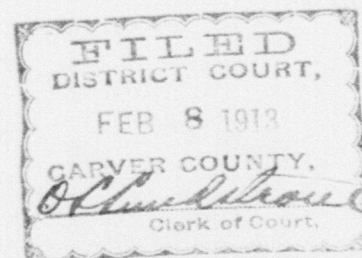 FILED
DISTRICT COURT,
FEB 8 1913
CARVER COUNTY,
Clerk of Court.